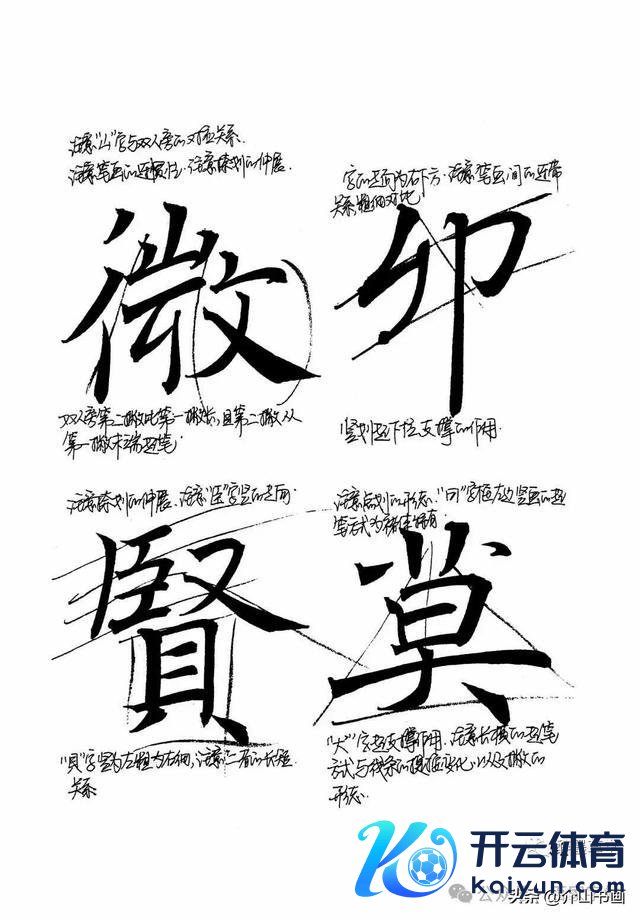 注意"山"字与双人旁的对应关系.
注意笔画的延展性.注意捺划的伸展.
字的走向为右下方.注意笔画间的连带
关系,粗细对比
微
卯
双人旁第二撇比第一撇长,且第二撇从
第一撇末端起笔.
竖划起下拉支撑的作用.
注意捺划的伸展.注意"臣"字竖的走向
注意点划的形态.字框左边竖画的起
笔方式为褚体独有.
賢
莫
"貝"字竖为左粗为右细,注意二者的长短
关系
"大"字起支撑作用.注意长横的起笔
方式与线条的提按变化.以及撇的
形态.
开云体育
kaiyun.com
头条 @介山书画